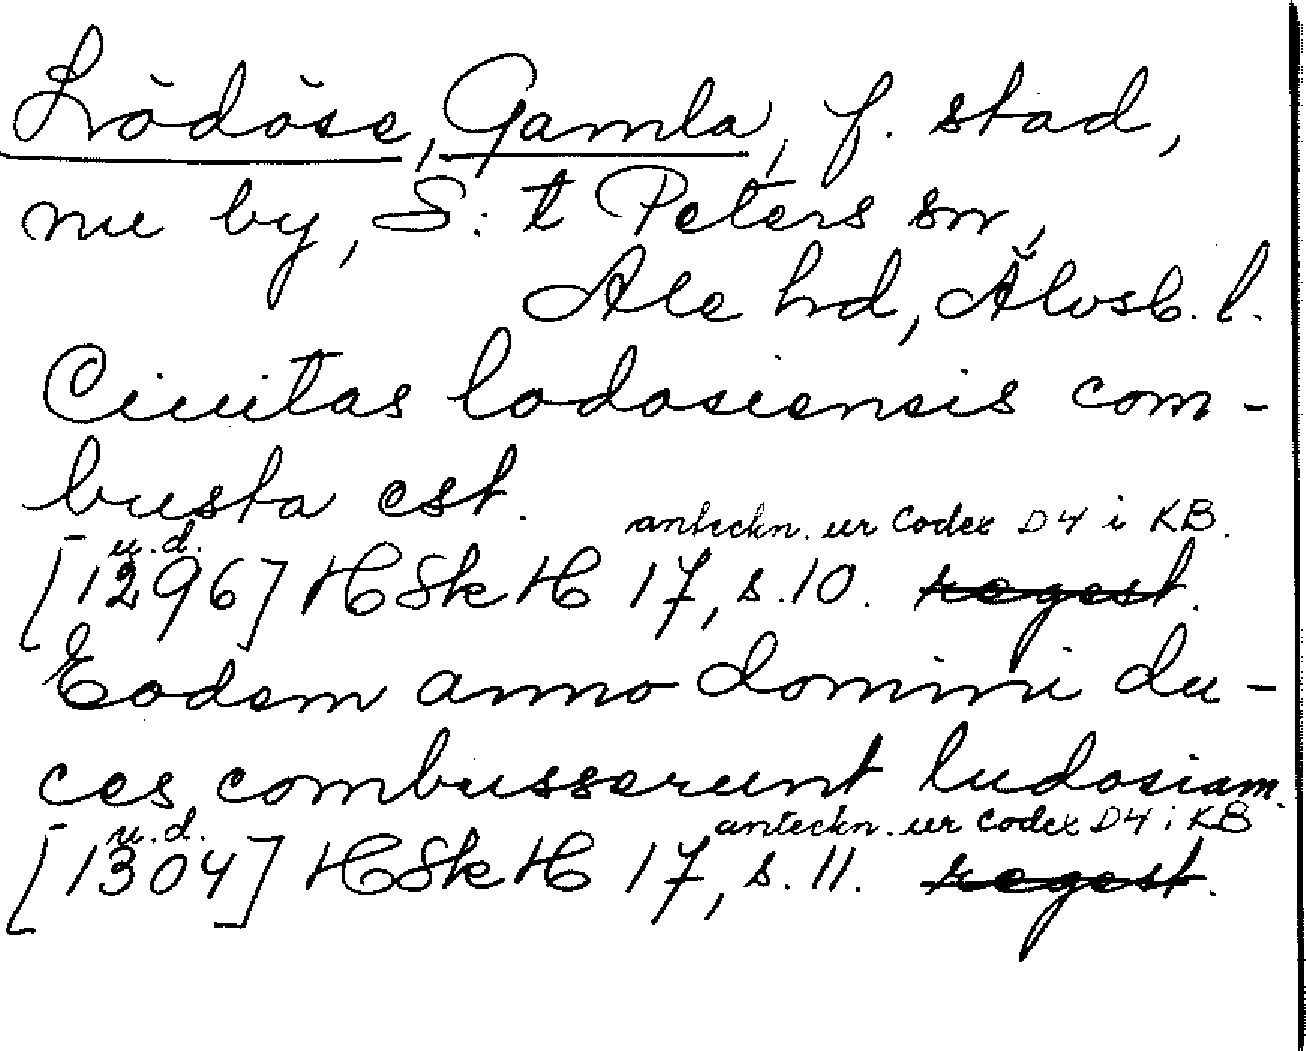 Lödöse, Gamla, f. stad,
nu by, S:t Peters sn,
Ale hd, Älvsb. l.
Ciuitas lodosiensis com-
busta est.
anteckn. ur Codex D4 i KB.
u.d.
[1296] HSkH 17, s.10. regest.
Eodem anno domini du-
ces combusserunt ludosiam.
u.d. anteckn. ur Codex D4 i KB
[1304] HSkH 17, s. 11. regest.